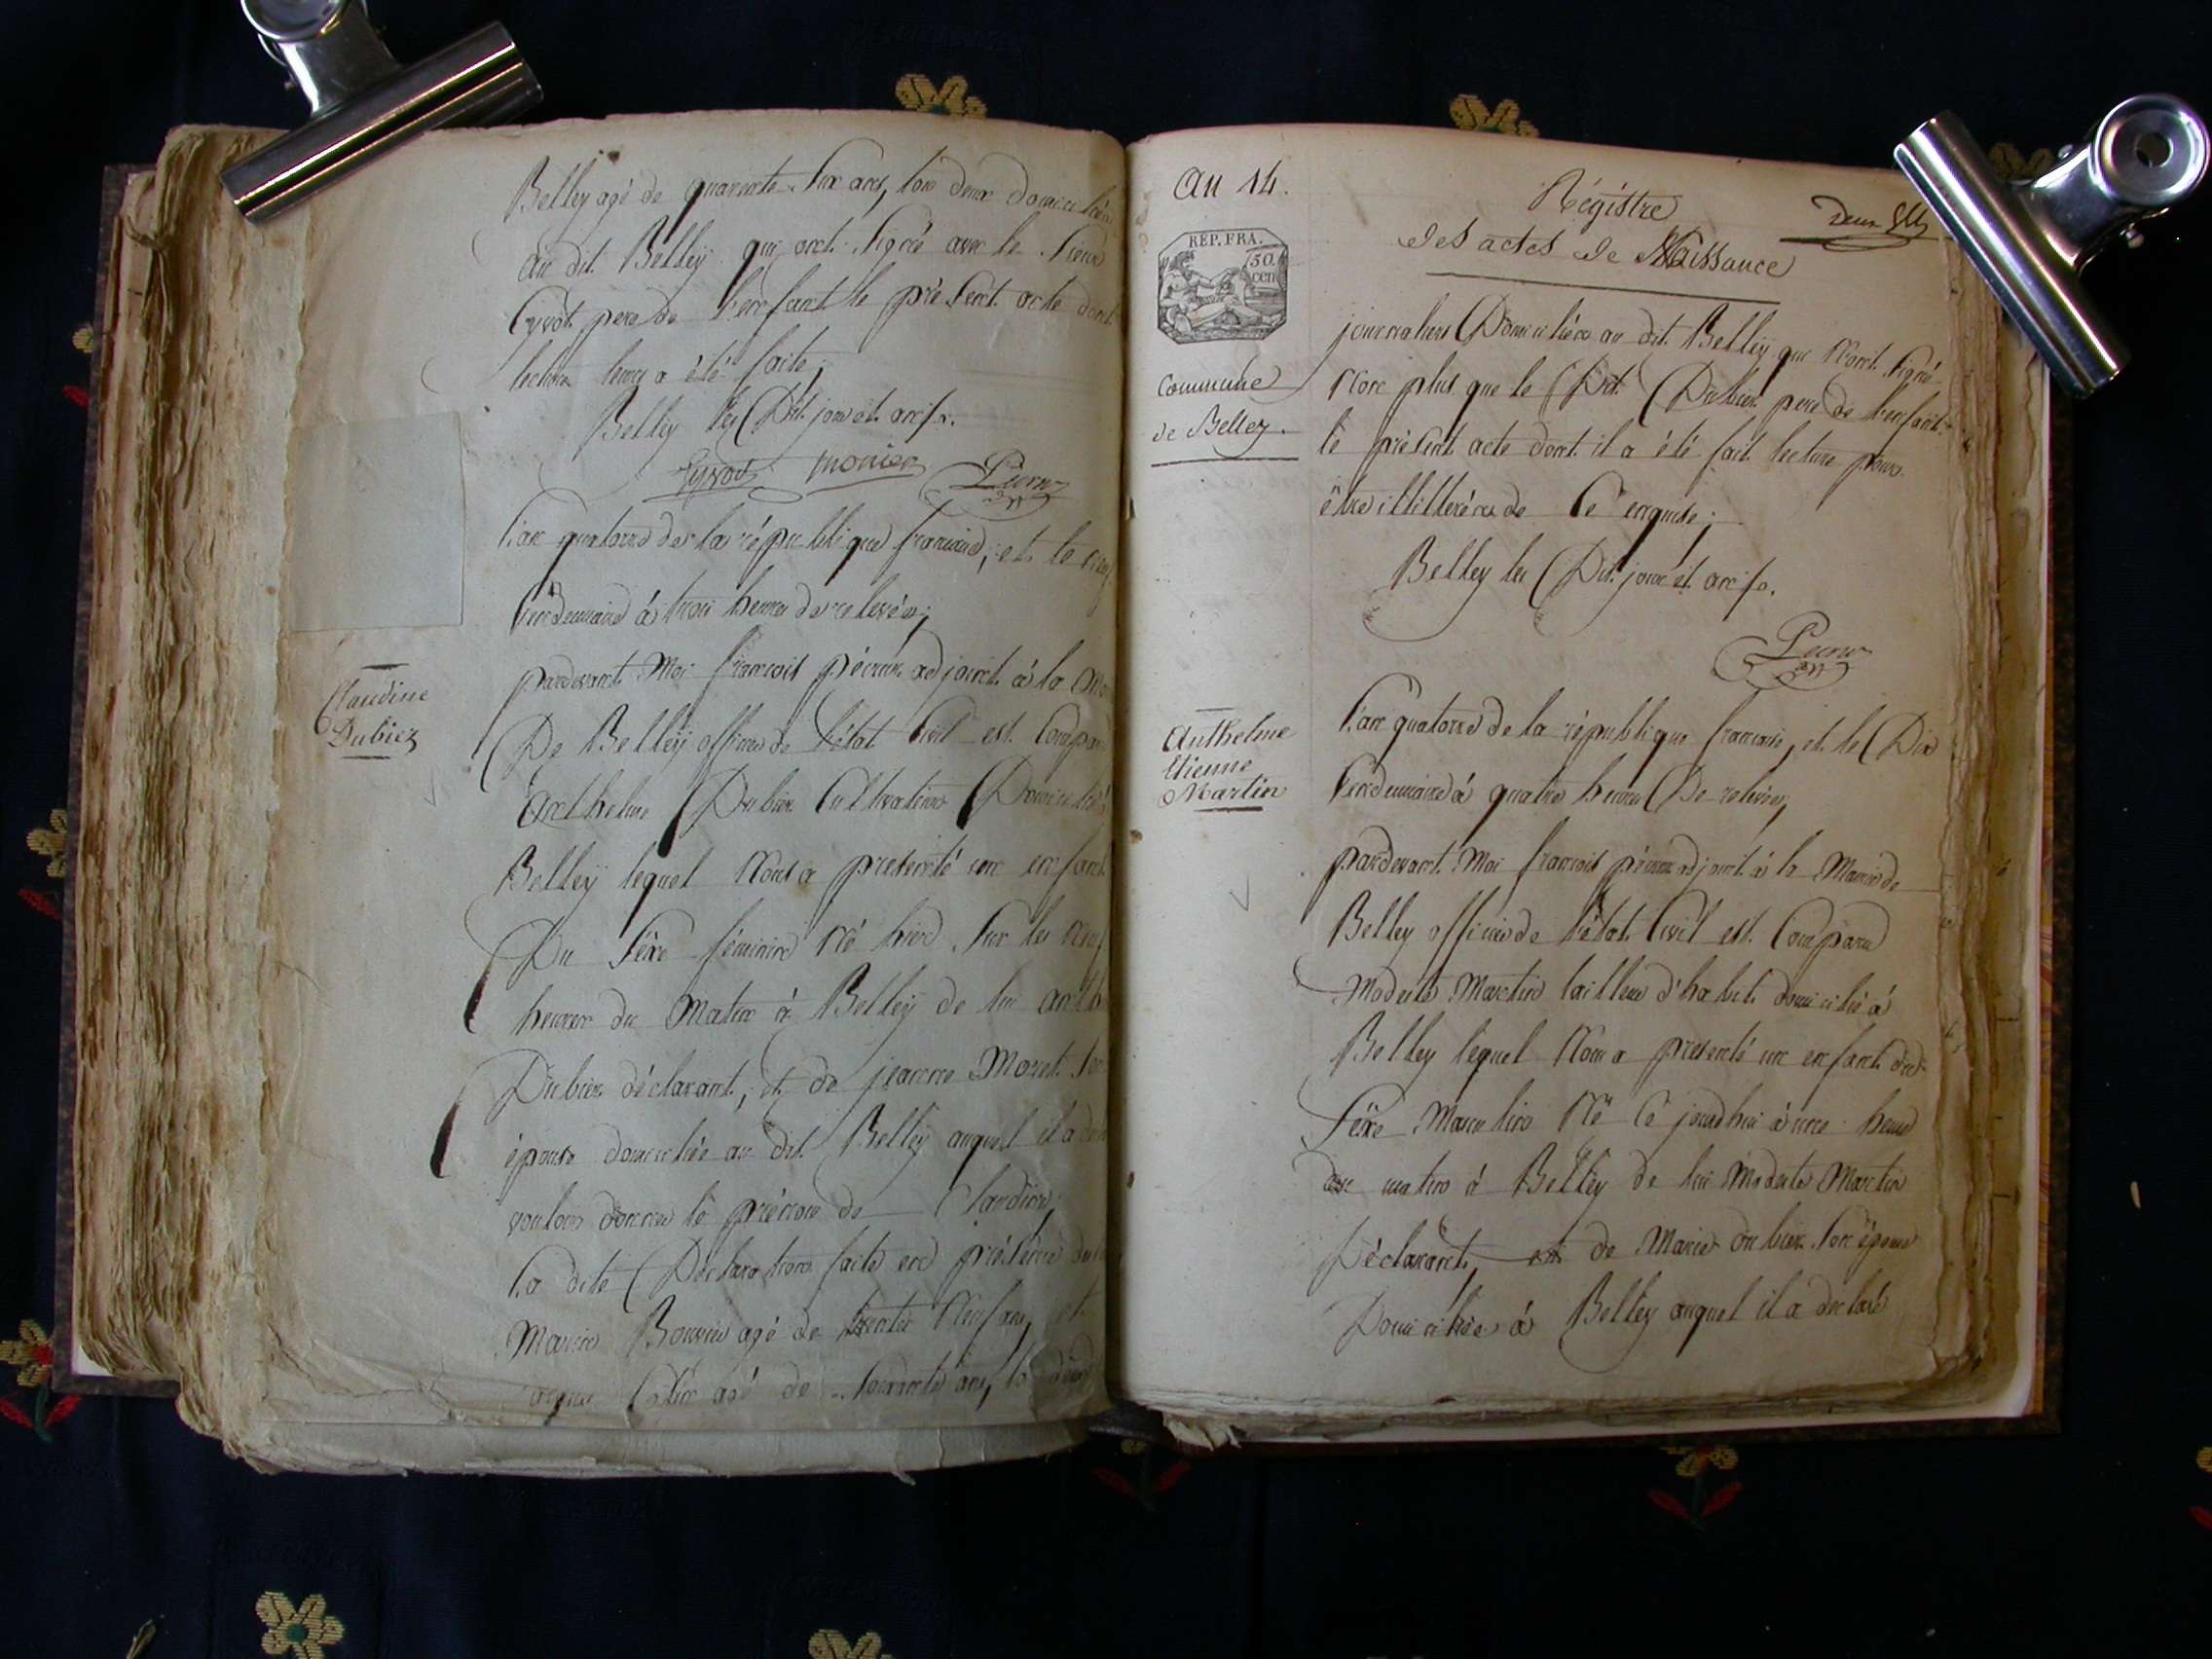 Belley agé de quarante six ans, tous deux domiciliés
au dit Belley qui ont signé avec le sieur
Gyvot pere de l'enfant le présent acte dont
lecture leur a été faite;
Belley les Dit jour et an /.
Gyvot monier Pecru
l'an quatorze de la république francaise, et le cinq
vendemiaire à trois heures de relevée;
Claudine
Dubiez
pardevant moi francois pécru adjoint à la
De Belley officier de l'état Civil est Comparu
Anthelme Dubiez Cultivateur Domicilié à
Belley lequel Nous a presenté un enfant
Du Séxe féminin Né hier sur les neuf
heures du Matin à Belley de lui
Dubiez déclarant, et de jeanne Moret
épouse domiciliée au dit Belley auquel il a
vouloir donner le prénom de Claudine
La dite Déclaration faite en présence
Bouvier agé de trente Neuf ans, et
agé de soixante ans,
An 14.
REP. FRA.
50.
cen
Commune
de Belley.
Régistre
des actes de Naissance
Deux
journaliers Domiciliés au dit Belley qui N'ont signé
Non plus que le Dit Dubiez pere de l'enfant
le présent acte dont il a été fait lecture pour
être illitterés de Ce enquis;
Belley les Dit jour et an /.
Pecru
Anthelme
Etienne
Martin
l'an quatorze de la république francaise, et le Dix
vendemiaire à quatre heures De relevée;
pardevant Moi francois pécru adjoint à la Mairie de
Belley officier de l'état Civil est Comparu
Modeste Martin tailleur d'habits domicilié à
Belley lequel Nous a presenté un enfant du
Séxe Masculin Né Ce jourdhui à une heure
du matin à Belley de lui Modeste Martin
Déclarant, et de Marie Dubiez son épouse
Domiciliée à Belley auquel il a declaré